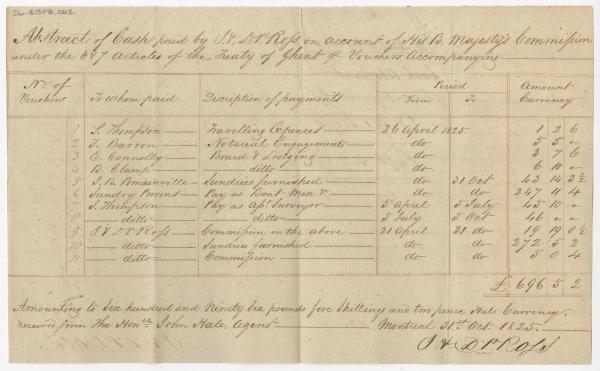 26-B13F3.062
Abstract of Cash paid by J. & D. P. Ross on account of His B. Majesty's Commission
under the 6 & 7 Articles of the Treaty of Ghent & Vouchers Accompanying
No. of Vouchers To whom paid Description of payments Period From To Amount Currency
1 S. Thompson Travelling Expences 26 April 1825 1 2 6
2 J. Barron Notarial Engagements do 5 5 "
3 E. Connolly Board & Lodging do 3 7 6
4 B. Clamp ditto do 6 10 "
5 J. B. Sundries furnished do 31 Oct 43 14 2½
6 Sundry Persons Pay as Boat Men & do do 247 11 4
7 S. Thompson Pay as Ast. Surveyor 5 April 5 July 45 10 "
8 ditto ditto 5 July 5 Oct 46 " "
9 J & D P Ross Commission on the above 21 April 31 do 19 19 0½
10 ditto Sundries furnished do do 272 5 2
11 ditto Commission do do 5 0 4
£ 696 5 2
Amounting to Six hundred and Ninety Six pounds five Shillings and two pence Currency.
received from the Honble. John Hale, Agent Montreal 31st Oct. 1825.
J. & D. P. Ross